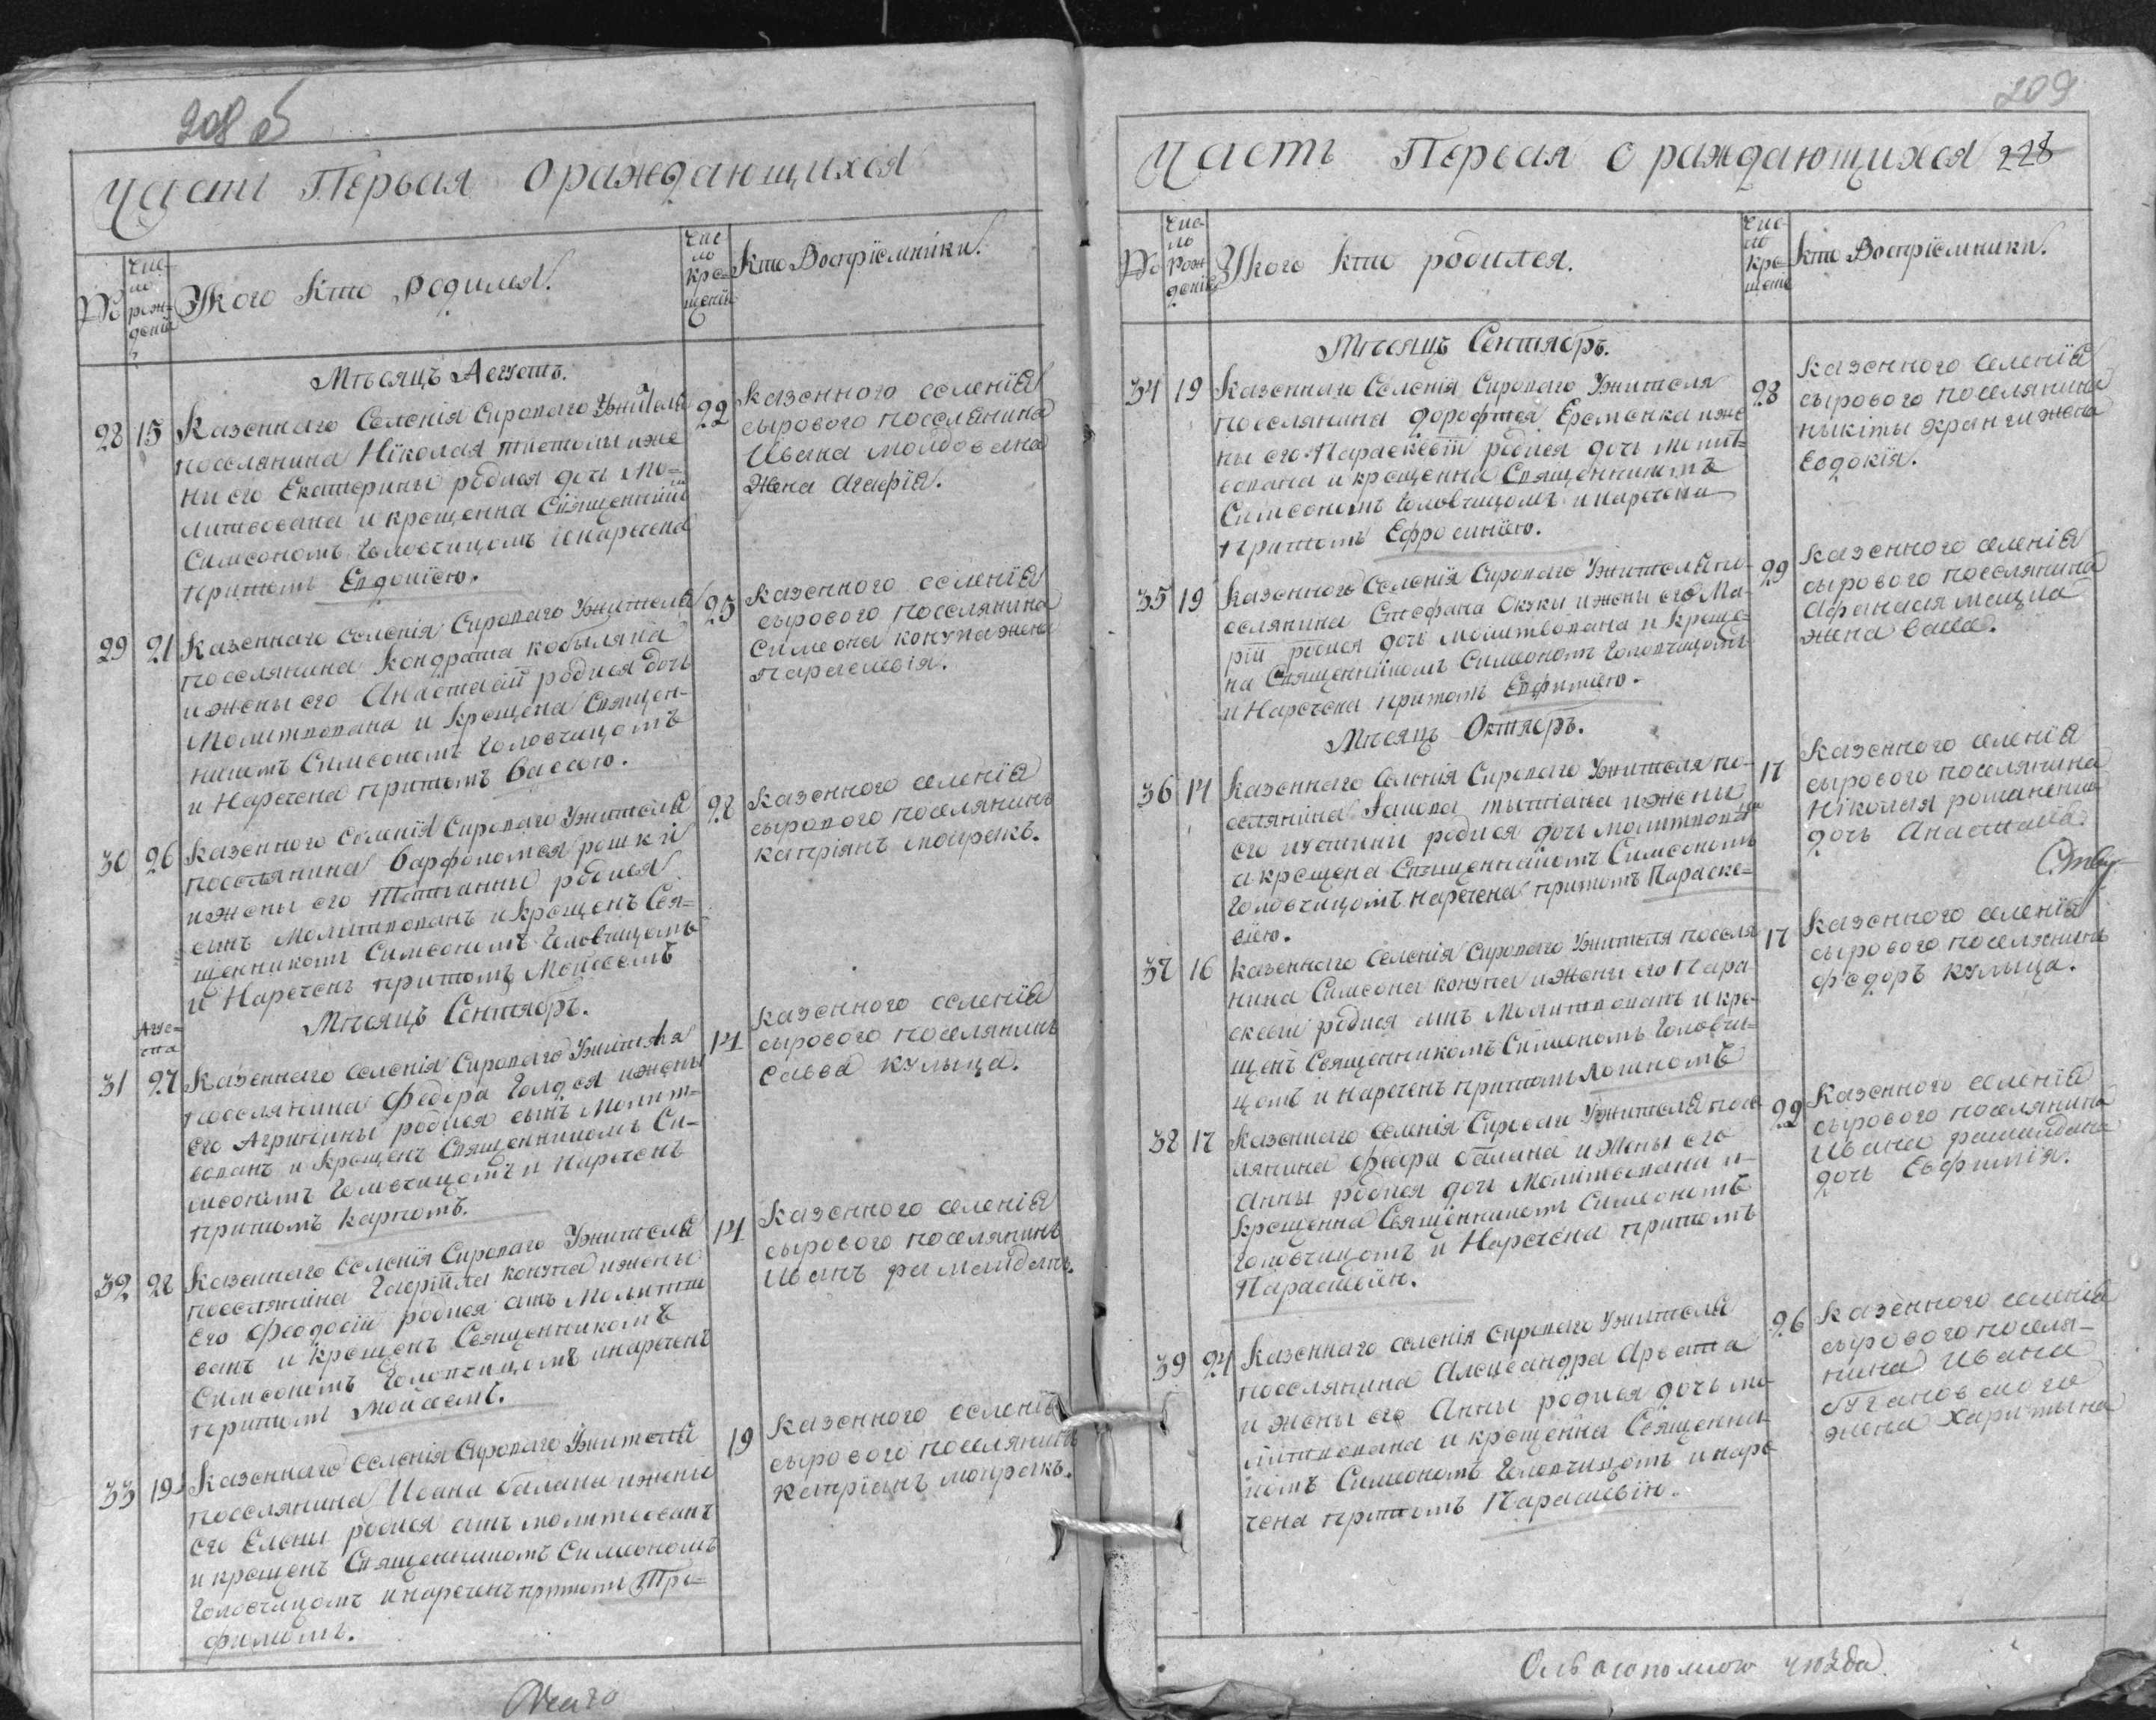 208 об
Часть Первая о раждающихся
№
Число рождения
У кого Кто Родился.
Число крещения
Кто Воспріемники.
Мѣсяцъ Августъ.
28 15 Казеннаго Селенія Сыроваго Жителя
поселянина Николая
ни его Екатерины родися дочь Мо-
литвована и крещенна Священникомъ
Симеономъ Головчицомъ и наречена
притомъ Евдокіею.
22 Казенного селенія
сырового поселянина
Ивана Молдована
Жена Агафія.
29 21 Казеннаго селенія Сыроваго Жителя
поселянина Кондрата кобыляна
и жены его Анастасіи родися дочь
Молитвована и крещена Священ-
никомъ Симеономъ Головчицомъ
и Наречена притомъ Вассою.
25 Казенного селенія
сырового поселянина
Симеона конупа жена
Параскевія.
30 26 Казенного селенія Сыроваго Жителя
поселянина Варфоломея рошки
и жены его Татіанны родися
сынъ Молитвованъ и крещенъ Свя-
щенникомъ Симеономъ Головчицомъ
и Нареченъ притомъ Мойсеемъ
28 Казенного селенія
сыроваго поселянинъ
Капріянъ мокрякъ.
Мѣсяцъ Сентябрь.
Авгу-
ста
31 27 Казеннаго селенія Сыроваго Жителя
поселянина Федора Голдея и жены
его Агрипины родися сынъ Молит-
вованъ и Крещенъ Священникомъ Си-
меономъ Головчицомъ и Нареченъ
притомъ Карпомъ.
14 Казенного селенія
сырового поселянинъ
Савва кулыца.
32 28 Казеннаго Селенія Сыроваго Жителя
поселянина Гавріила конупа и жены
его Феодосіи родися сынъ Молитво
ванъ и крещенъ Священникомъ
Симеономъ Головчицомъ и нареченъ
притомъ Мойсеемъ.
14 Казенного селенія
сырового поселянинъ
Иванъ
33 19 Казеннаго Селенія Сыроваго Жителя
поселянина Ивана балана и жены
его Елены родися сынъ молитвованъ
и крещенъ Священникомъ Симеономъ
Головчицомъ и нареченъ притомъ Тро-
фимомъ.
19 Казенного селенія
сырового поселянинъ
Капріанъ мокрякъ.
Всего
209
Часть Первая о раждающихся 228
№
Число рожденія
У кого Кто родился.
Число крещенія
Кто Воспріемники.
Мѣсяцъ Сентябрь.
34 19 Казеннаго Селенія Сыроваго Жителя
поселянина дорофтея Еременка и же
ны его Параскевіи родися дочь молит-
вована и крещенна Священникомъ
Симеономъ Головчицомъ и наречена
притомъ Ефросиніею.
28 Казенного селенія
сырового поселянина
Никиты жена
Евдокія.
35 19 Казенного Селенія Сыроваго Жителя по-
селянина Стефана Окуки и жены его Ма-
ріи родися дочь молитвована и креще-
на Священникомъ Симеономъ Головчицомъ
и Наречена притомъ Евфиміею.
29 Казенного селенія
сырового поселянина
Афанасія
жена Васса.
Мѣсяцъ Октябрь.
36 14 Казеннаго Селенія Сыроваго Жителя по-
селянина Іакова и жены
его родися дочь молитвована
и крещена Священникомъ Симеономъ
Головчицомъ наречена притомъ Параске-
віею.
17 Казенного селенія
сырового поселянина
Николая романенка
дочь Анастасія.
37 16 Казенного селенія Сыроваго Жителя поселя
нина Симеона конупа и жены его Пара
скевіи родися сынъ Молитвованъ и кре-
щенъ Священникомъ Симеономъ Головчи-
цомъ и нареченъ притомъ Логиномъ
17 Казенного селенія
сырового поселянинъ
федоръ кулыца.
38 17 Казенного селенія Сыроваго Жителя посе
лянина Федора балана и жены его
Анны родися дочь Молитвована и
крещенна Священникомъ Симеономъ
Головчицомъ и Наречена притомъ
Параскевіею.
22 Казенного селенія
сырового поселянина
Ивана
дочь Евфимія.
39 24 Казеннаго селенія Сыроваго Жителя
поселянина Александра
и жены его Анны родися дочь мо
литвована и крещенна Священни
комъ Симеономъ Головчицомъ и наре
чена притомъ Параскевіею.
26 Казенного селенія
сырового поселя-
нина Ивана
жена Харитына
Ольгопольского уѣзда.